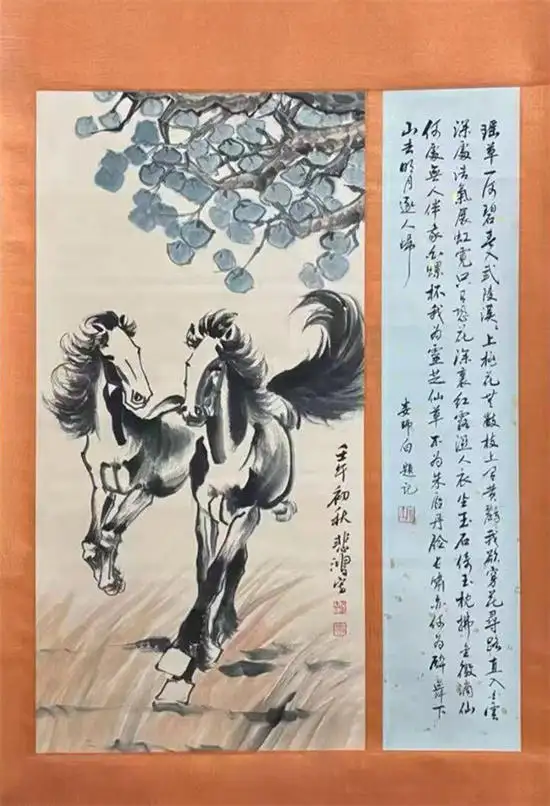 瑶草一何碧春入武陵溪、上桃花无数枝上有黄鸝我欲穿花尋路直入白雲
深處浩氣展虹霓只恐花深裏红露濕人衣坐玉石倚玉枕拂金徽谪仙
何處無人伴我白螺杯我为靈芝仙草不为朱唇丹臉长啸亦何为醉舞下
山去明月逐人歸
娄师白題记
壬午初秋悲鴻写